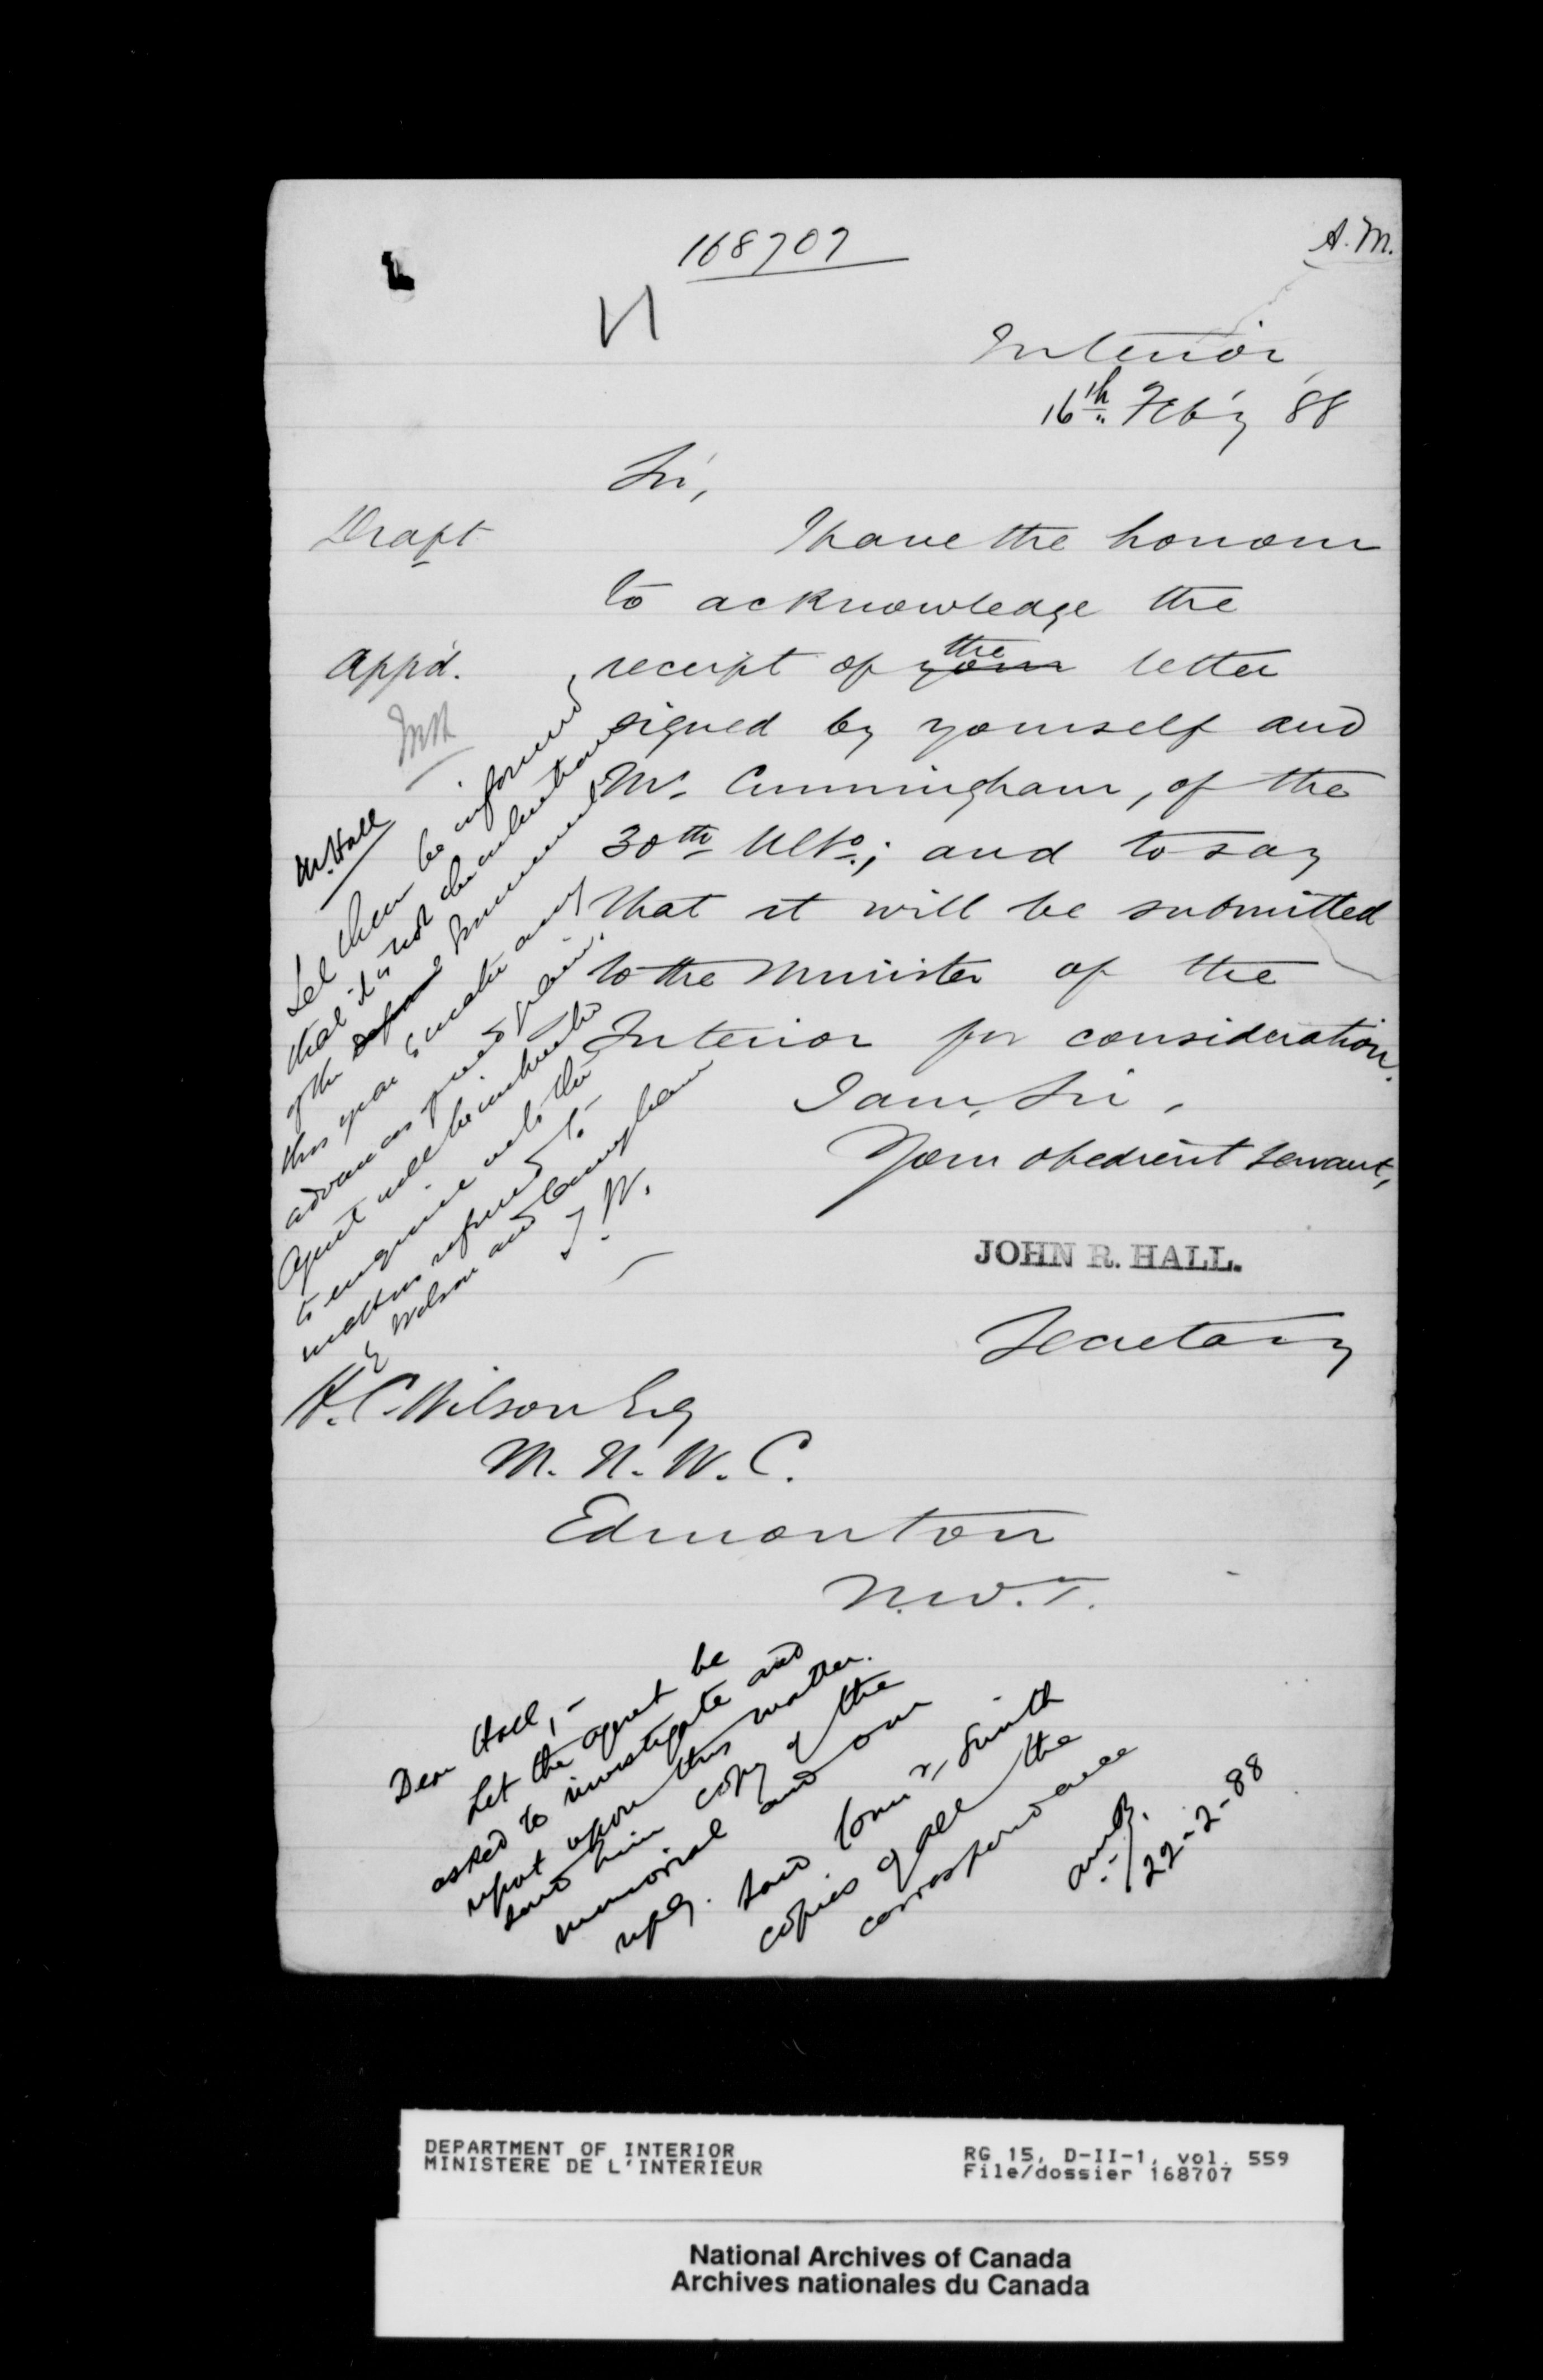 168707
A.M.
Interior
16th Feb'y '88
Sir,
Draft
I have the honour
to acknowledge the
App'd.
receipt of your the letter
signed by yourself and
Mr. Cunningham, of the
30th Ulto.; and to say
that it will be submitted
to the Minister of the
Interior for consideration.
I am, Sir,
Your obedient servant,
JOHN R. HALL.
Secretary
Mr. Hall
Let them be informed
that it is not the intention
of the Government
this year to make any
advances of seed grain.
Agent will be instructed
to enquire into the
matters referred to
by Wilson and Cunningham
T. W.
H. C. Wilson Esq
M. N. W. C.
Edmonton
N.W.T.
Dear Hall,-
Let the agent be
asked to investigate and
report upon this matter.
Send him copy of the
memorial and our
reply. Send Comr. Smith
copies of all the
correspondence
A.M.B.
22-2-88
DEPARTMENT OF INTERIOR
MINISTERE DE L'INTERIEUR
RG 15, D-II-1, vol. 559
File/dossier 168707
National Archives of Canada
Archives nationales du Canada